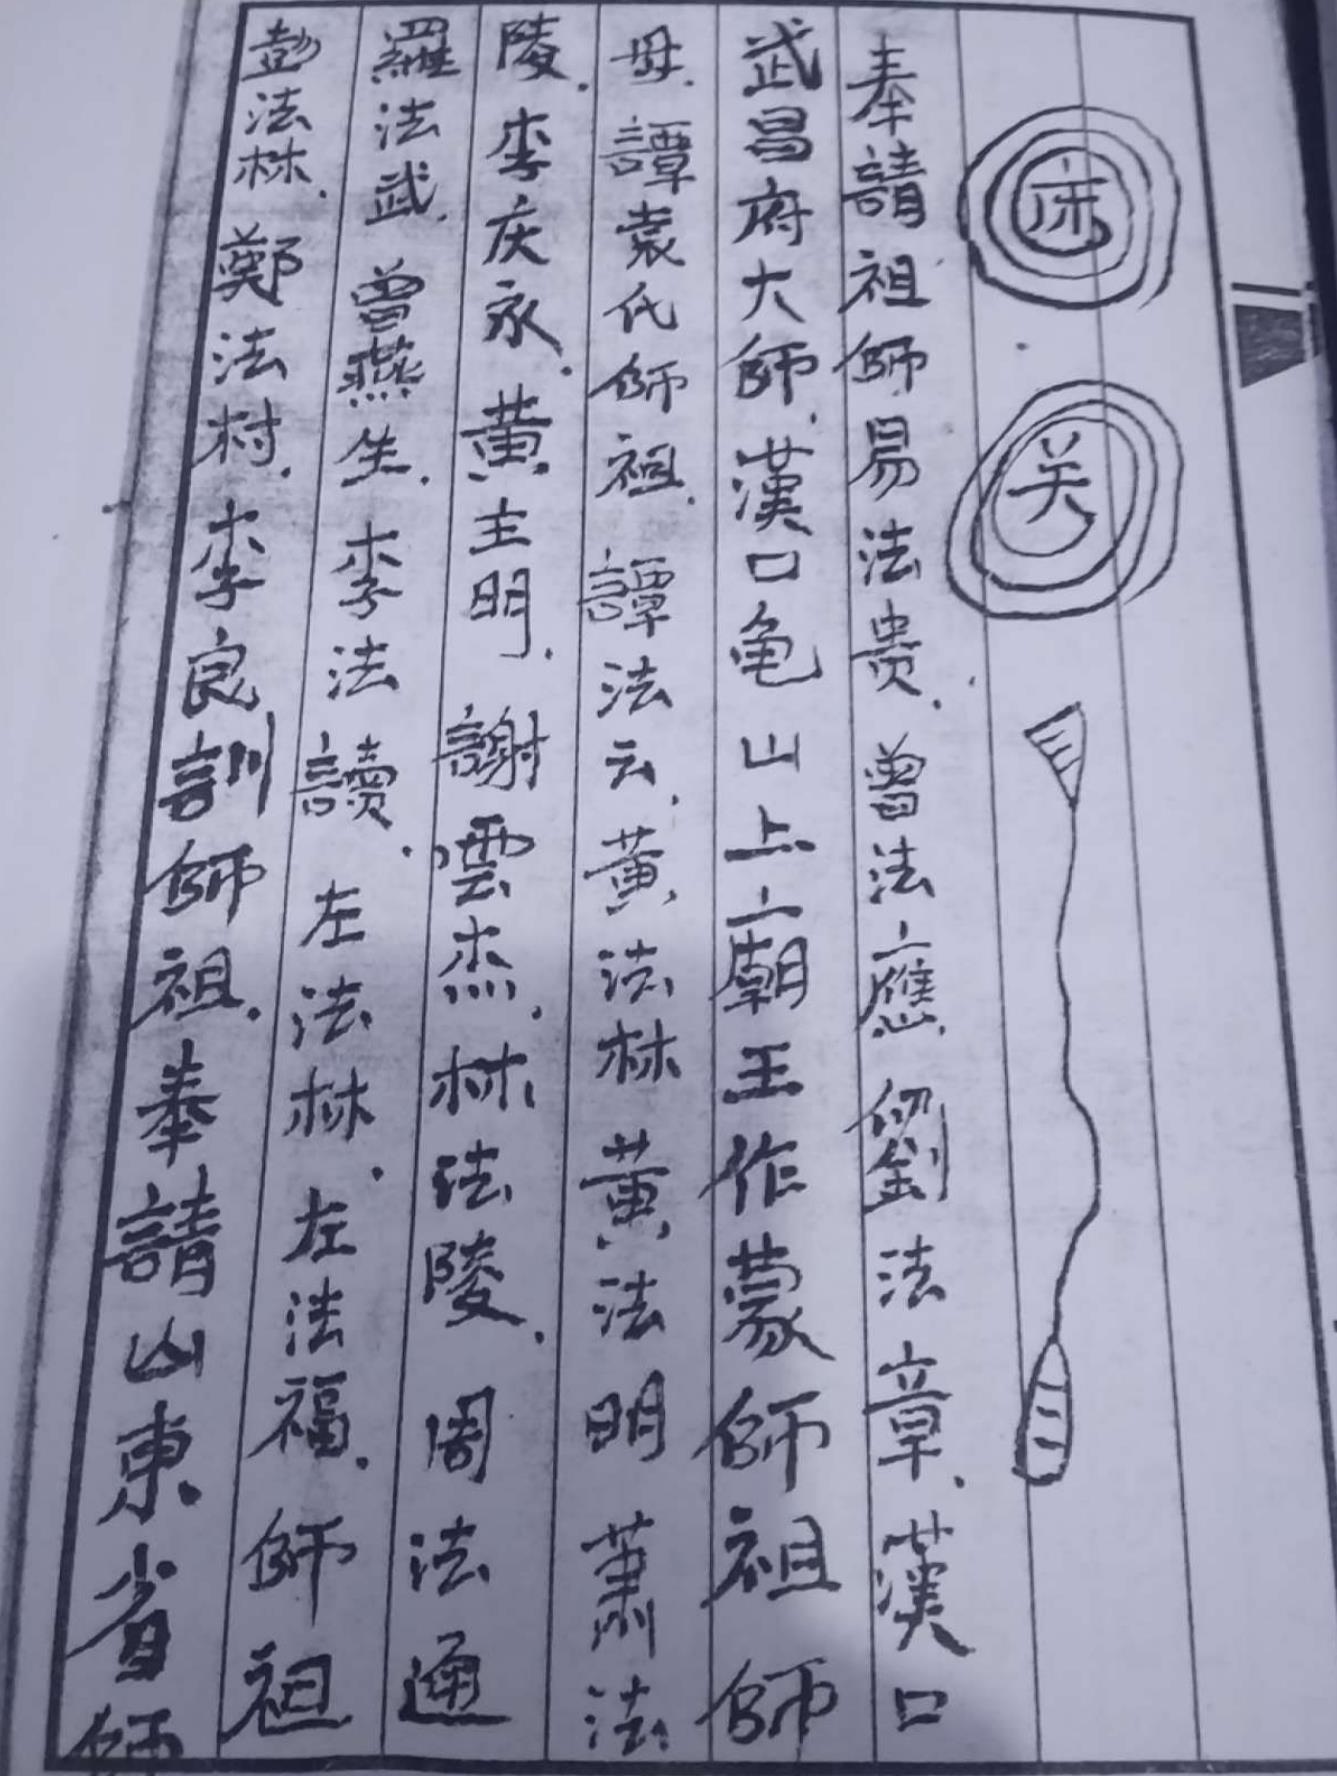 床
关
奉請祖師易法贵.曾法應.劉法章.漢口
武昌府大師.漢口龟山上廟王作蒙師祖師
母.譚袁氏師祖.譚法云.黄法林黄法明萧法
陵.李庆永.黄主明.謝雲杰.林法陵.周法通
羅法武.曾燕生.李法讀.左法林.左法福.師祖
彭法林.鄭法村.李良訓師祖.奉請山東省師